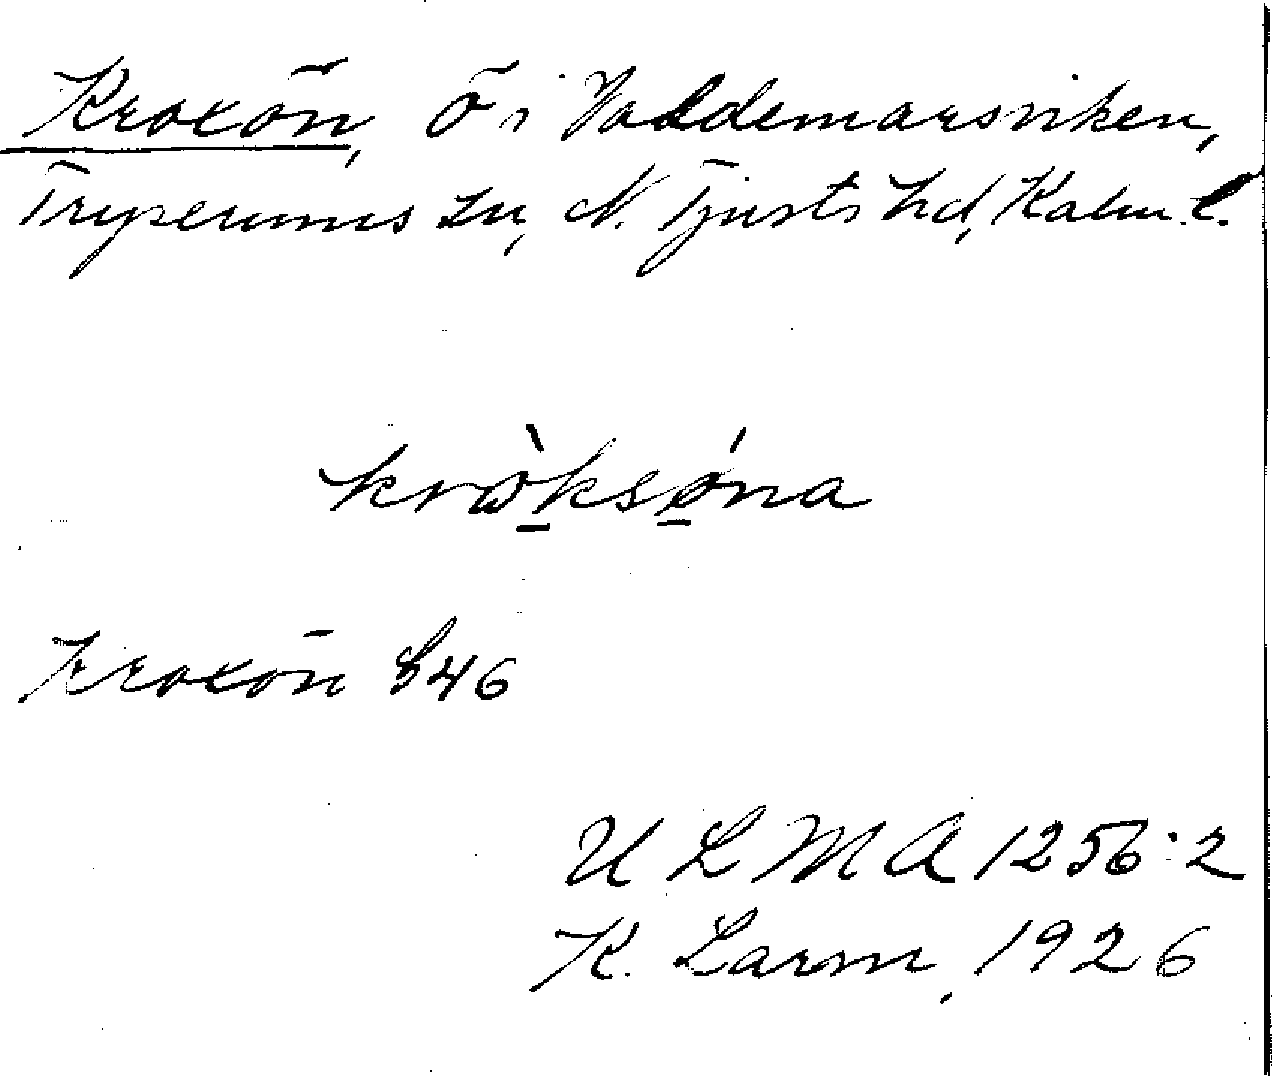 Kroxön, ö i Valdemarsviken,
Tryserums sn, N. Tjusts hd, Kalm. l.
krὼksǿna
Kroxön S46
ULMA 1256:2
K. Larm, 1926